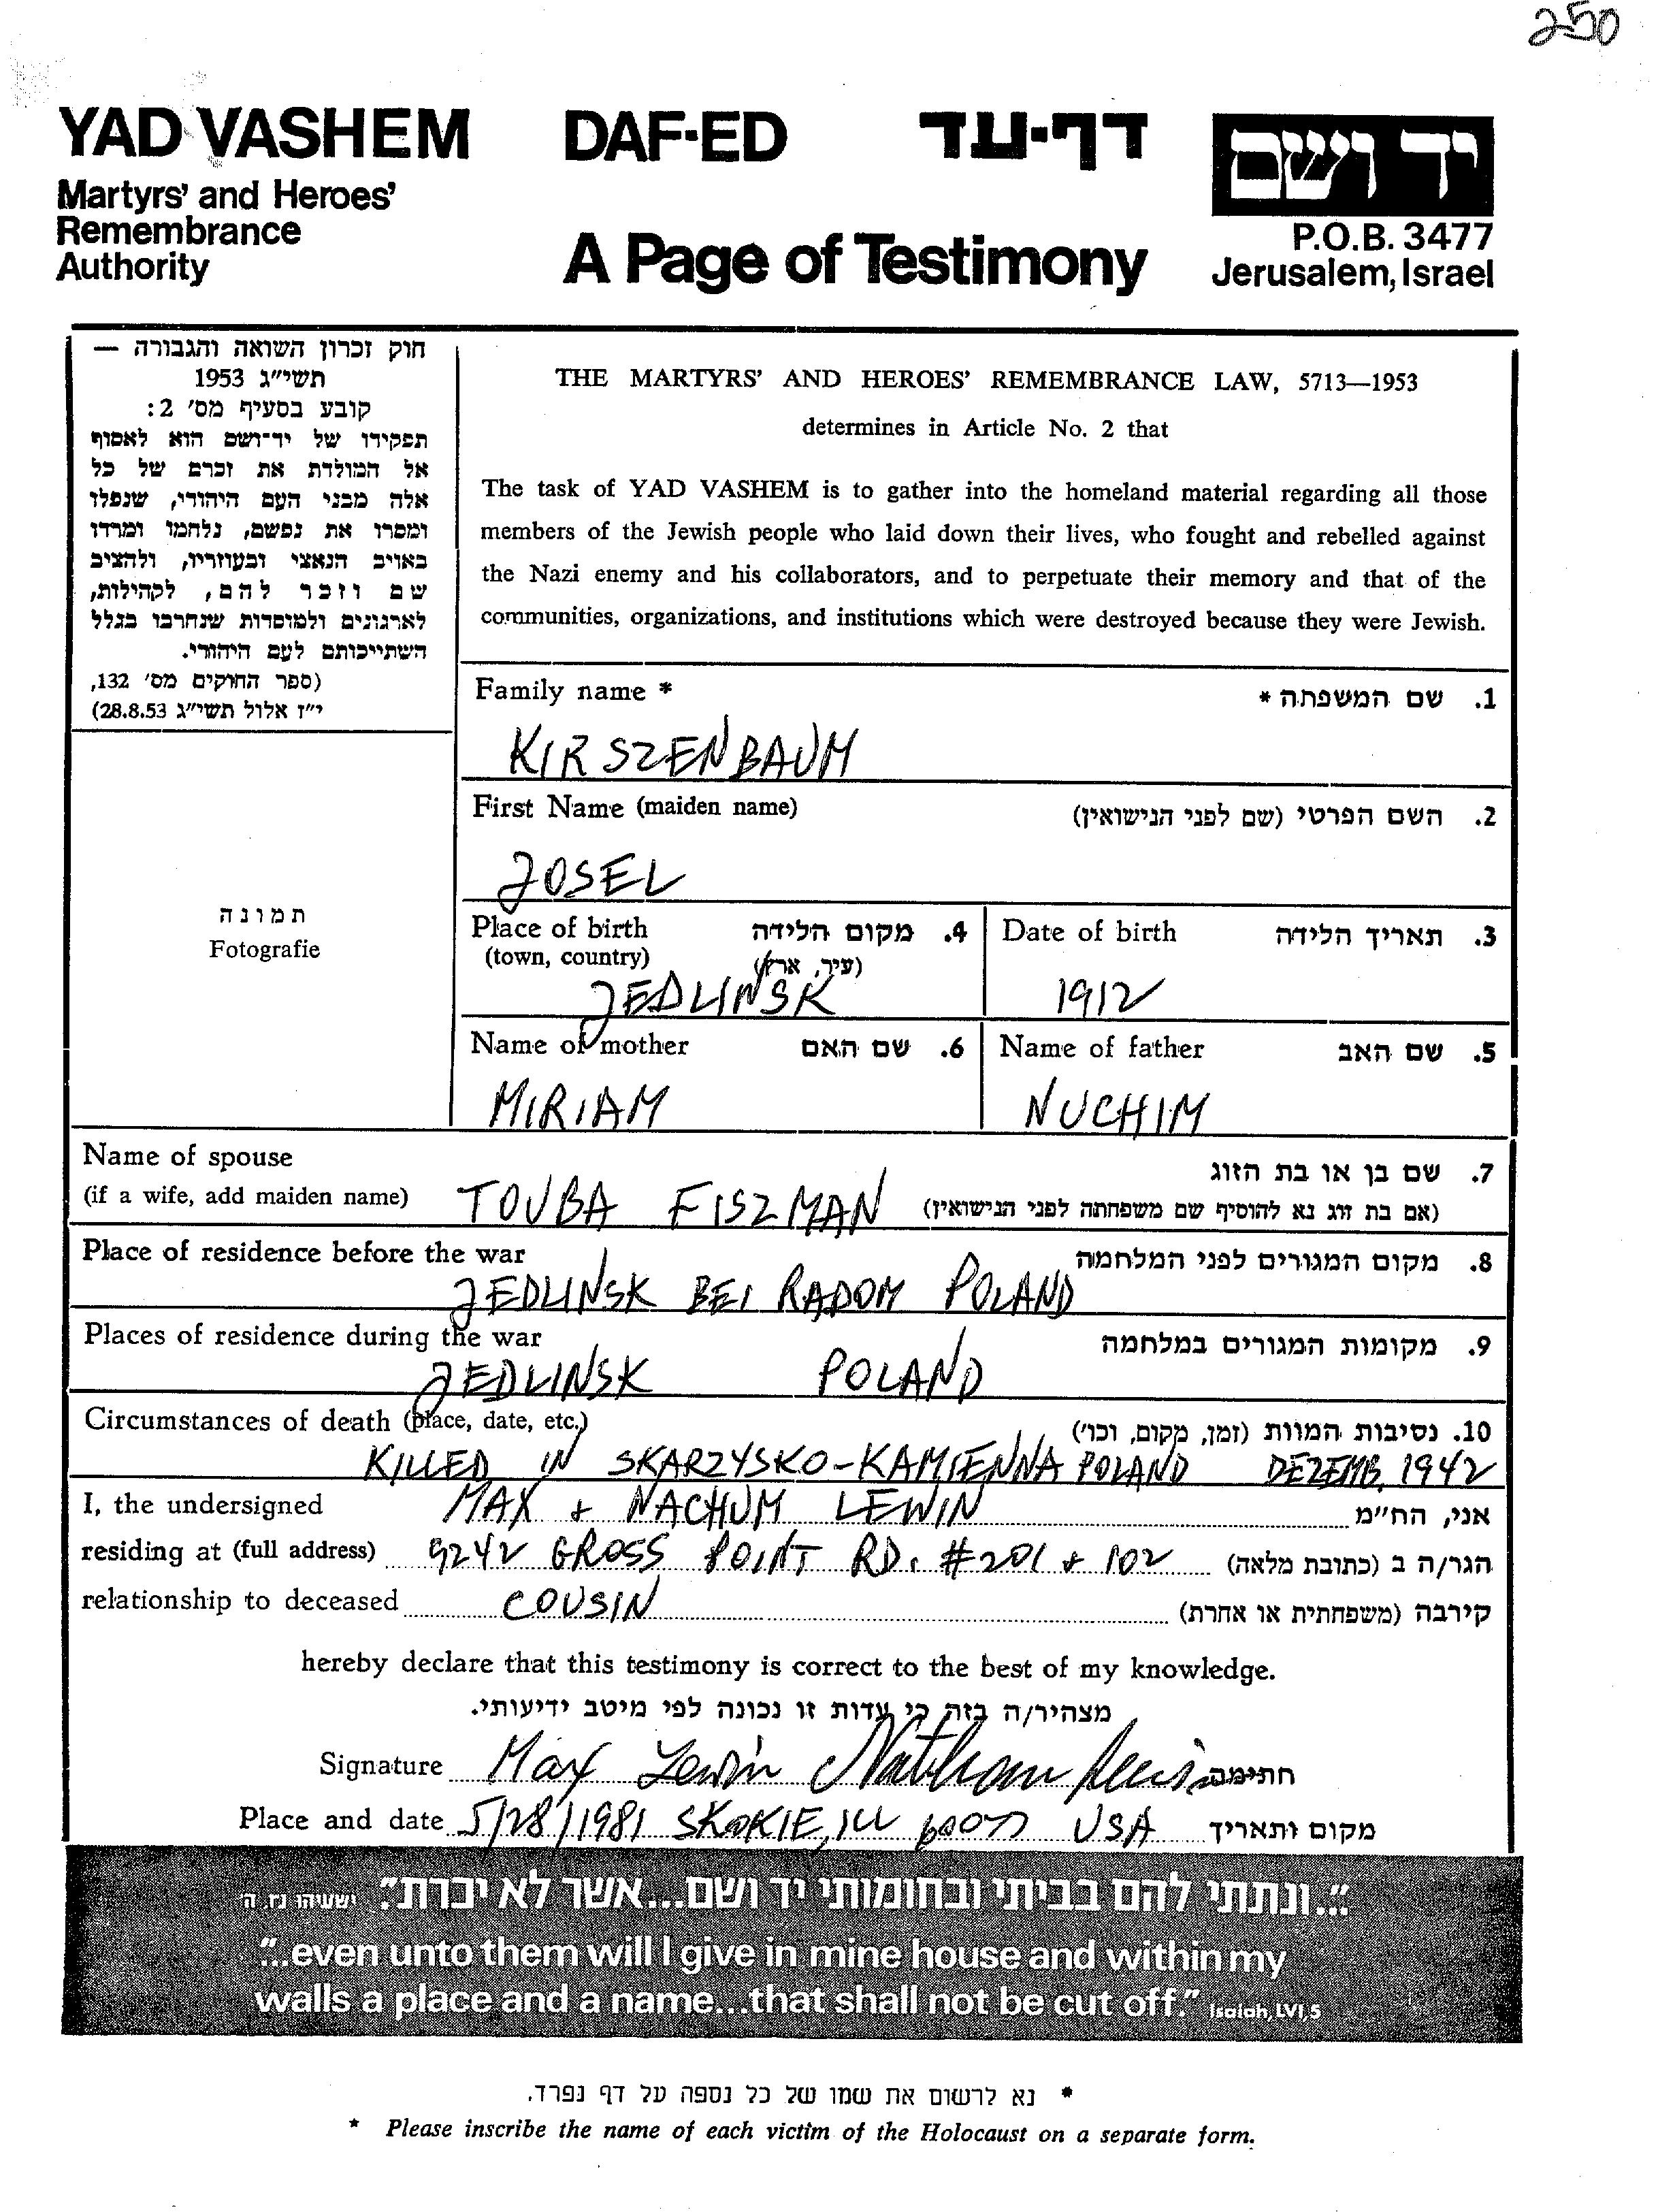 250
YAD VASHEM DAF-ED דף-עד יד ושם
Martyrs' and Heroes'
Remembrance
Authority
A Page of Testimony
P.O.B. 3477
Jerusalem, Israel
חוק זכרון השואה והגבורה —
תשי"ג 1953
קובע בסעיף מס' 2:
תפקידו של יד-ושם הוא לאסוף
אל המולדת את זכרם של כל
אלה מבני העם היהודי, שנפלו
ומסרו את נפשם, נלחמו ומרדו
באויב הנאצי ובעוזריו, ולהציב
שם וזכר להם, לקהילות,
לארגונים ולמוסדות שנחרבו בגלל
השתייכותם לעם היהודי.
(ספר החוקים מס' 132,
י"ז אלול תשי"ג 28.8.53)
תמונה
Fotografie
THE MARTYRS' AND HEROES' REMEMBRANCE LAW, 5713—1953
determines in Article No. 2 that
The task of YAD VASHEM is to gather into the homeland material regarding all those
members of the Jewish people who laid down their lives, who fought and rebelled against
the Nazi enemy and his collaborators, and to perpetuate their memory and that of the
communities, organizations, and institutions which were destroyed because they were Jewish.
Family name * 1. שם המשפחה *
KIRSZENBAUM
First Name (maiden name) 2. השם הפרטי (שם לפני הנישואין)
JOSEL
Place of birth 4. מקום הלידה Date of birth 3. תאריך הלידה
(town, country) (עיר, ארץ)
JEDLINSK 1912
Name of mother 6. שם האם Name of father 5. שם האב
MIRIAM NUCHIM
Name of spouse 7. שם בן או בת הזוג
(if a wife, add maiden name) TOUBA FISZMAN (אם בת זוג נא להוסיף שם משפחתה לפני הנישואין)
Place of residence before the war 8. מקום המגורים לפני המלחמה
JEDLINSK BEI RADOM POLAND
Places of residence during the war 9. מקומות המגורים במלחמה
JEDLINSK POLAND
Circumstances of death (place, date, etc.) 10. נסיבות המוות (זמן, מקום, וכו')
KILLED IN SKARZYSKO-KAMIENNA POLAND DEZEMB. 1942
I, the undersigned MAX + NACHUM LEWIN אני, הח"מ
residing at (full address) 9242 GROSS POINT RD. #201 + 102 הגר/ה ב (כתובת מלאה)
relationship to deceased COUSIN קירבה (משפחתית או אחרת)
hereby declare that this testimony is correct to the best of my knowledge.
מצהיר/ה בזה כי עדות זו נכונה לפי מיטב ידיעותי.
Signature Max Lewin Nathan Lewin חתימה
Place and date 5/28/1981 SKOKIE, ILL 60077 USA מקום ותאריך
"...ונתתי להם בביתי ובחומותי יד ושם...אשר לא יכרת". ישעיהו נו, ה'
"...even unto them will I give in mine house and within my
walls a place and a name...that shall not be cut off." Isaiah, LVI,5
* נא לרשום את שמו של כל נספה על דף נפרד.
* Please inscribe the name of each victim of the Holocaust on a separate form.